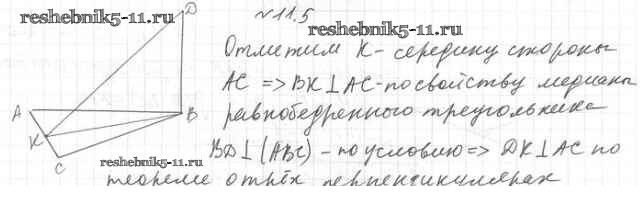 № 11.5
reshebnik5-11.ru
reshebnik5-11.ru
D
Отметим K - середину стороны
AC => BK ⊥ AC - по свойству медианы
A
B
равнобедренного треугольника
K
C
BD ⊥ (ABC) - по условию => DK ⊥ AC по
reshebnik5-11.ru
теореме о трёх перпендикулярах